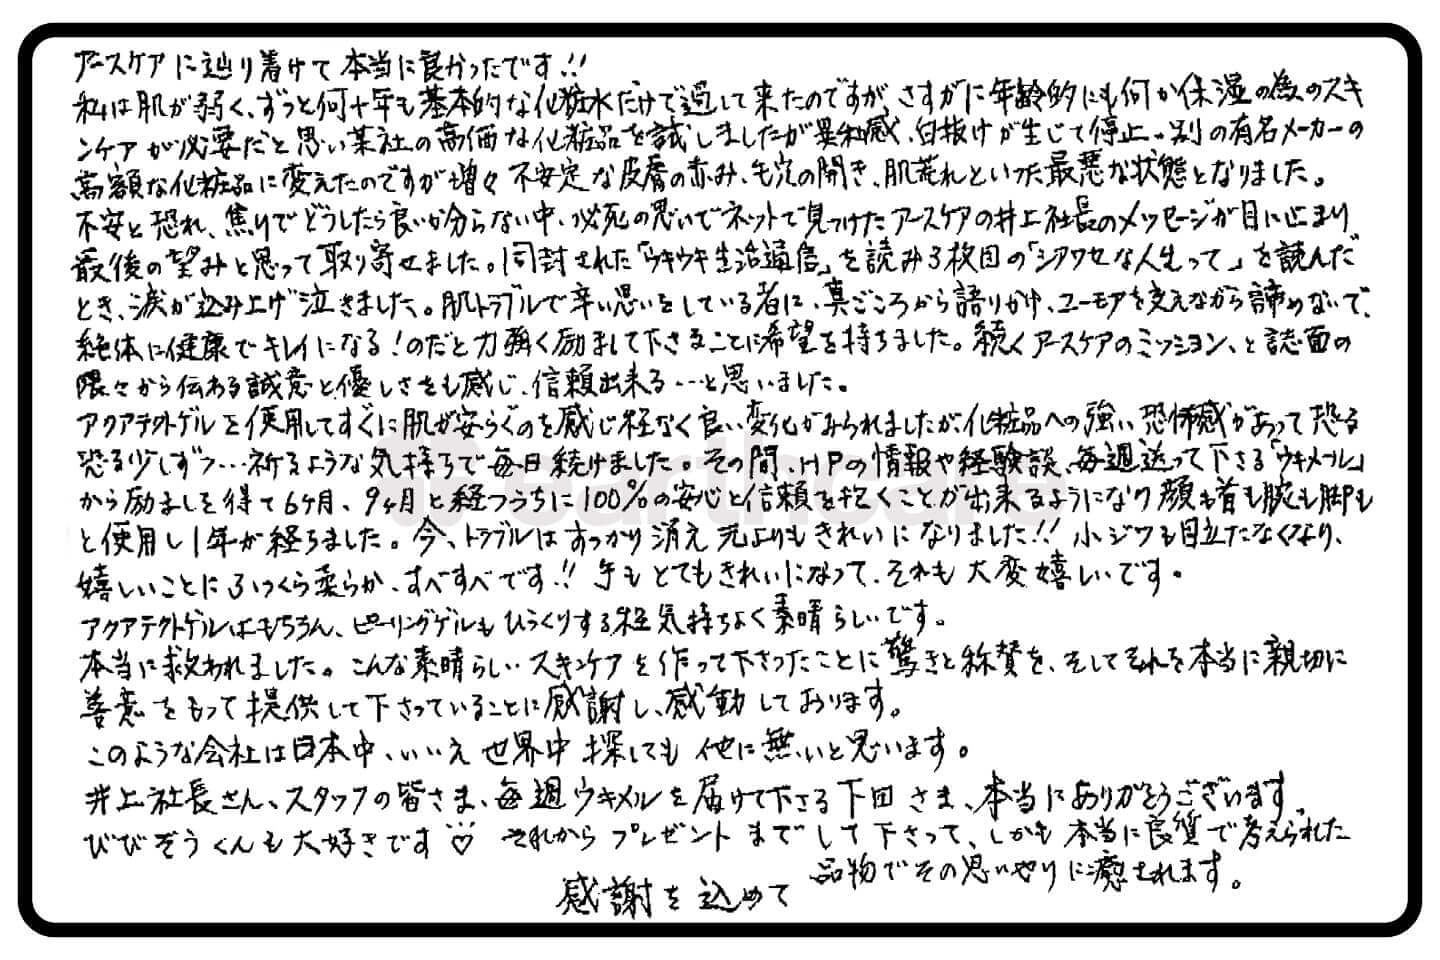 アースケアに辿り着けて本当に良かったです!!
私は肌が弱く、ずっと何十年も基本的な化粧水だけで過して来たのですが、さすがに年齢的にも何か保湿の為のスキ
ンケアが必要だと思い某社の高価な化粧品を試しましたが異和感、白抜けが生じて停止。別の有名メーカーの
高額な化粧品に変えたのですが増々不安定な皮膚の赤み、毛穴の開き、肌荒れといった最悪な状態となりました。
不安と恐れ、焦りでどうしたら良いか分らない中、必死の思いでネットで見つけたアースケアの井上社長のメッセージが目に止まり
最後の望みと思って取り寄せました。同封された「ウキウキ生活通信」を読み3枚目の「シアワセな人生って」を読んだ
とき、涙が込み上げ泣きました。肌トラブルで辛い思いをしている者に、真ごころから語りかけ、ユーモアを交えながら諦めないで、
絶体に健康でキレイになる!のだと力強く励まして下さることに希望を持ちました。続くアースケアのミッション、と誌面の
隅々から伝わる誠意と優しさをも感じ、信頼出来る…と思いました。
アクアテクトゲルを使用してすぐに肌が安らぐのを感じ程なく良い変化がみられましたが、化粧品への強い恐怖感があって恐る
恐る少しずつ…祈るような気持ちで毎日続けました。その間、HPの情報や経験談、毎週送って下さる「ウキメール」
から励ましを得て6ヶ月、9ヶ月と経つうちに100%の安心と信頼を抱くことが出来るようになり顔も首も腕も脚も
と使用し1年が経ちました。今、トラブルはすっかり消え元よりもきれいになりました!! 小ジワも目立たなくなり、
嬉しいことにふっくら柔らか、すべすべです!! 手もとてもきれいになって、それも大変嬉しいです。
アクアテクトゲルはもちろん、ピーリングゲルもびっくりする程気持ちよく素晴らしいです。
本当に救われました。こんな素晴らしいスキンケアを作って下さったことに驚きと称賛を、そしてそれを本当に親切に
善意をもって提供して下さっていることに感謝し、感動しております。
このような会社は日本中、いいえ世界中探しても他に無いと思います。
井上社長さん、スタッフの皆さま、毎週ウキメルを届けて下さる下田さま、本当にありがとうございます。
びびぞうくんも大好きです♡ それからプレゼントまでして下さって、しかも本当に良質で考えられた
品物でその思いやりに癒されます。
感謝を込めて
earthcare